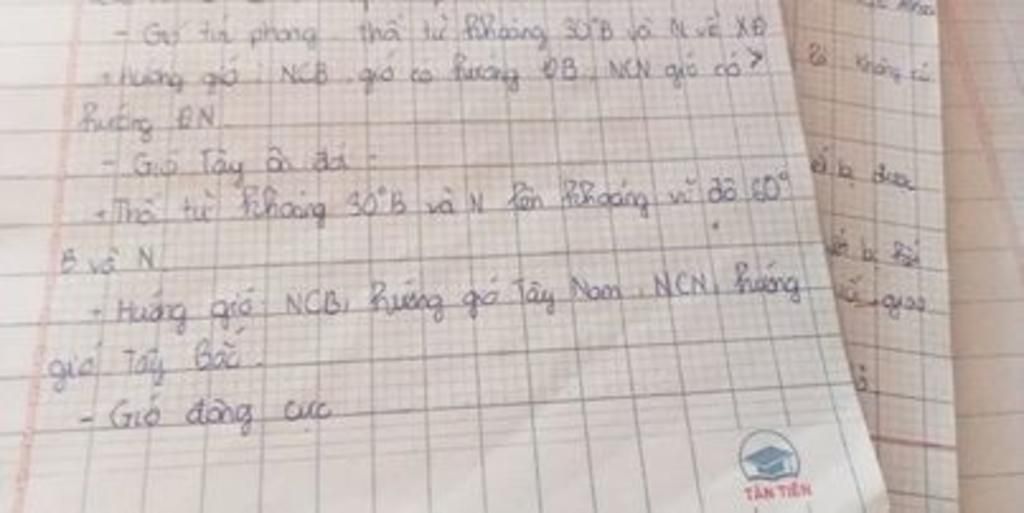 - Gió tín phong thổi từ khoảng 30°B và N về XĐ
+ Hướng gió NCB gió có hướng ĐB, NCN gió có >
hướng ĐN
- Gió Tây ôn đới
+ Thổi từ khoảng 30°B và N lên khoảng vĩ độ 60°
B và N
+ Hướng gió NCB, hướng gió Tây Nam, NCN, hướng
gió Tây Bắc.
- Gió đông cực
TÂN TIẾN